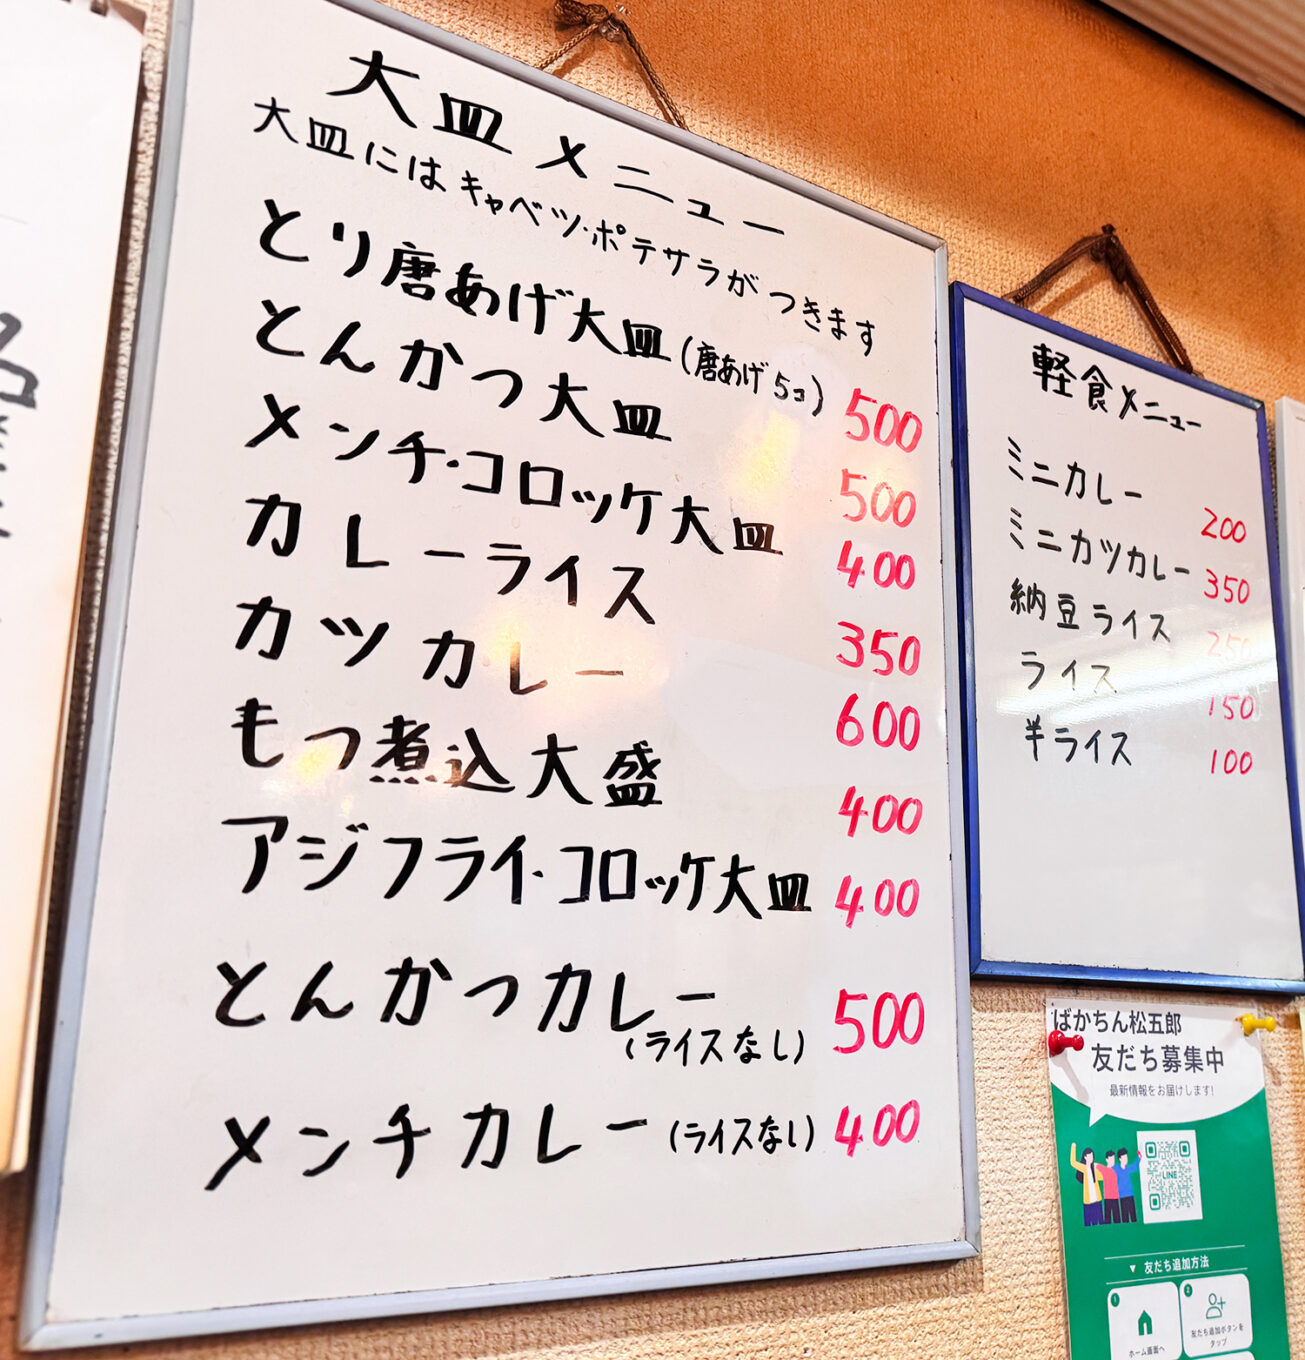 大皿メニュー
大皿にはキャベツ・ポテサラがつきます
とり唐あげ大皿(唐あげ5コ) 500
とんかつ大皿 500
メンチ・コロッケ大皿 400
カレーライス 350
カツカレー 600
もつ煮込大盛 400
アジフライ・コロッケ大皿 400
とんかつカレー(ライスなし) 500
メンチカレー(ライスなし) 400
軽食メニュー
ミニカレー 200
ミニカツカレー 350
納豆ライス 250
ライス 150
半ライス 100
ばかちん松五郎
友だち募集中
最新情報をお届けします!
LINE
▼ 友だち追加方法
1
ホーム画面へ
2
友だち追加ボタンを
タップ